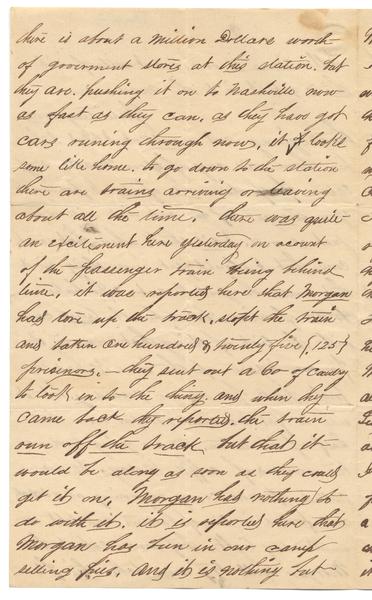 there is about a million Dollars worth
of goverment stores at this station. but
they are. pushing it on to Nashville now
as fast as they can. as they have got
cars runing through now, it looks
some like home. to go down to the station
there are trains arriving or leaving
about all the time. there was quite
an excitement here yesterday on acount
of the passenger train being behind
time. it was reported here that Morgan
had tore up the track. stopt the train
and taken one hundred & twenty five {125}
prisenors. — they sent out a Co of cavlry
to look in to the thing. and when they
came back they reported. the train
run off the track but that it
would be along as soon as they could
get it on. Morgan had nothing to
do with it. it is reported here that
Morgan has bin in our camp
selling pies. and it is nothing but